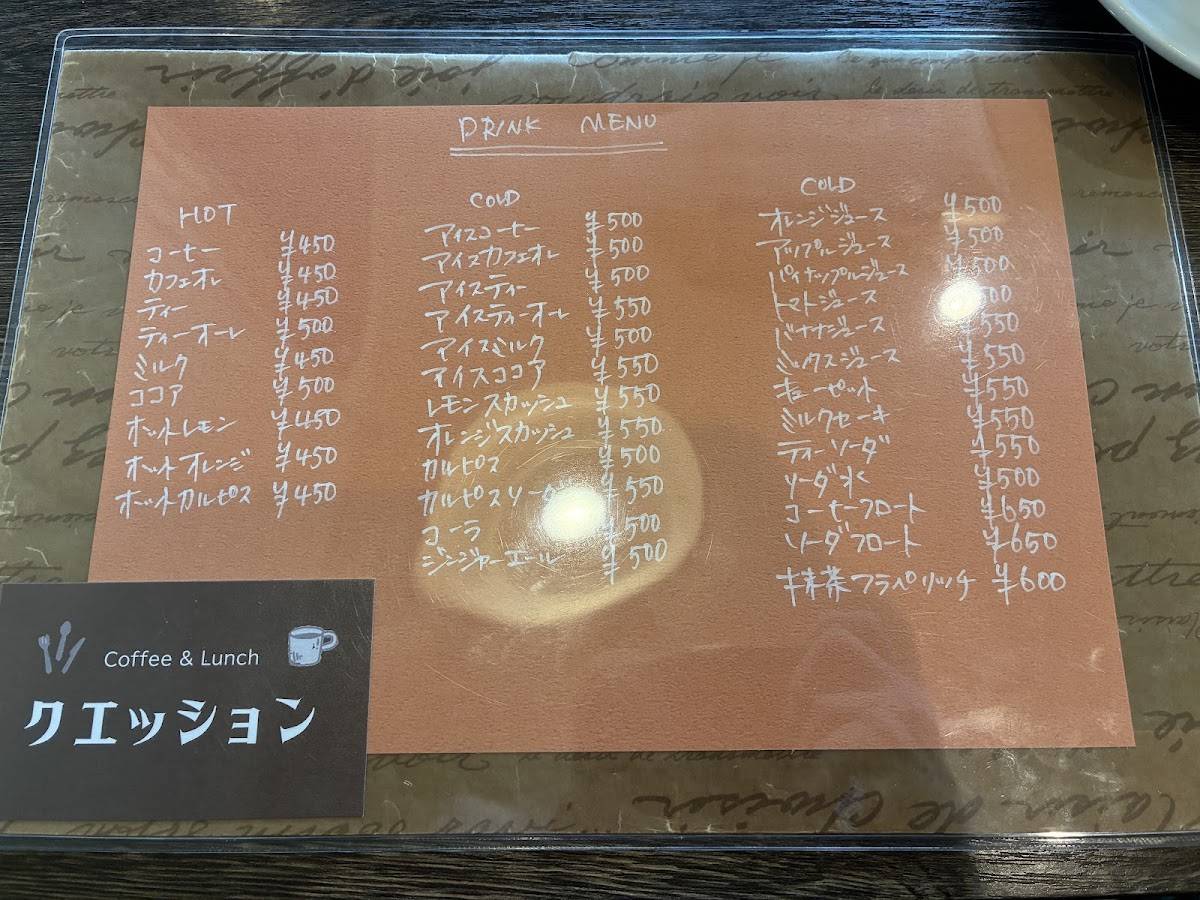 DRINK MENU
HOT
コーヒー ¥450
カフェオレ ¥450
ティー ¥450
ティーオーレ ¥500
ミルク ¥450
ココア ¥500
ホットレモン ¥450
ホットオレンジ ¥450
ホットカルピス ¥450
COLD
アイスコーヒー ¥500
アイスカフェオレ ¥500
アイスティー ¥500
アイスティーオーレ ¥550
アイスミルク ¥500
アイスココア ¥550
レモンスカッシュ ¥550
オレンジスカッシュ ¥550
カルピス ¥500
カルピスソーダ ¥550
コーラ ¥500
ジンジャーエール ¥500
COLD
オレンジジュース ¥500
アップルジュース ¥500
パイナップルジュース ¥500
トマトジュース
バナナジュース ¥550
ミックスジュース ¥550
キューピット ¥550
ミルクセーキ ¥550
ティーソーダ ¥550
ソーダ水 ¥500
コーヒーフロート ¥650
ソーダフロート ¥650
抹茶フラペリッチ ¥600
Coffee & Lunch
クエッション